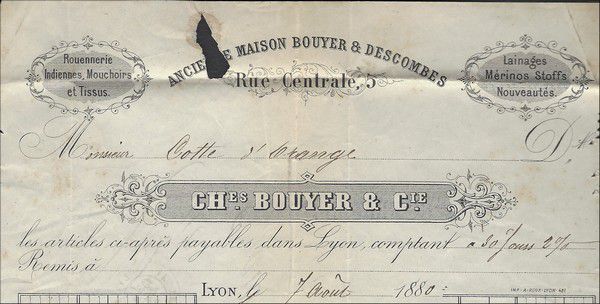 Rouennerie
Indiennes, Mouchoirs
et Tissus.
MAISON BOUYER & DESCOMBES
Rue Centrale, 5
Lainages
Mérinos Stoffs
Nouveautés.
Monsieur Cotte d'Orange
CHES. BOUYER & CIE
les articles ci-après payables dans Lyon, comptant a 30 Jours 2%
Remis à
LYON, le 7 Août 1880